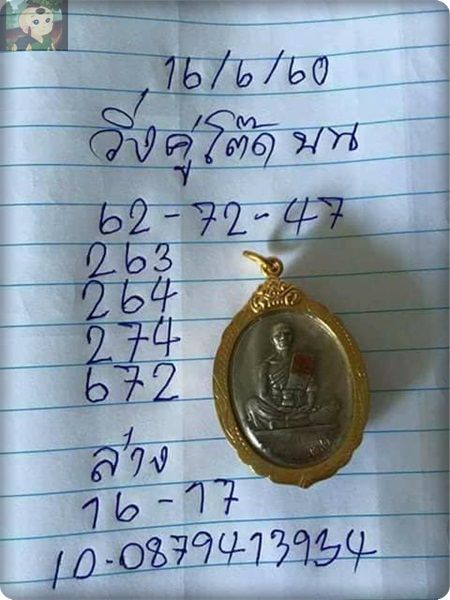 16/6/60
วิ่งคู่โต๊ด บน
62-72-47
263
264
274
672
ล่าง
16-17
10-0879413934